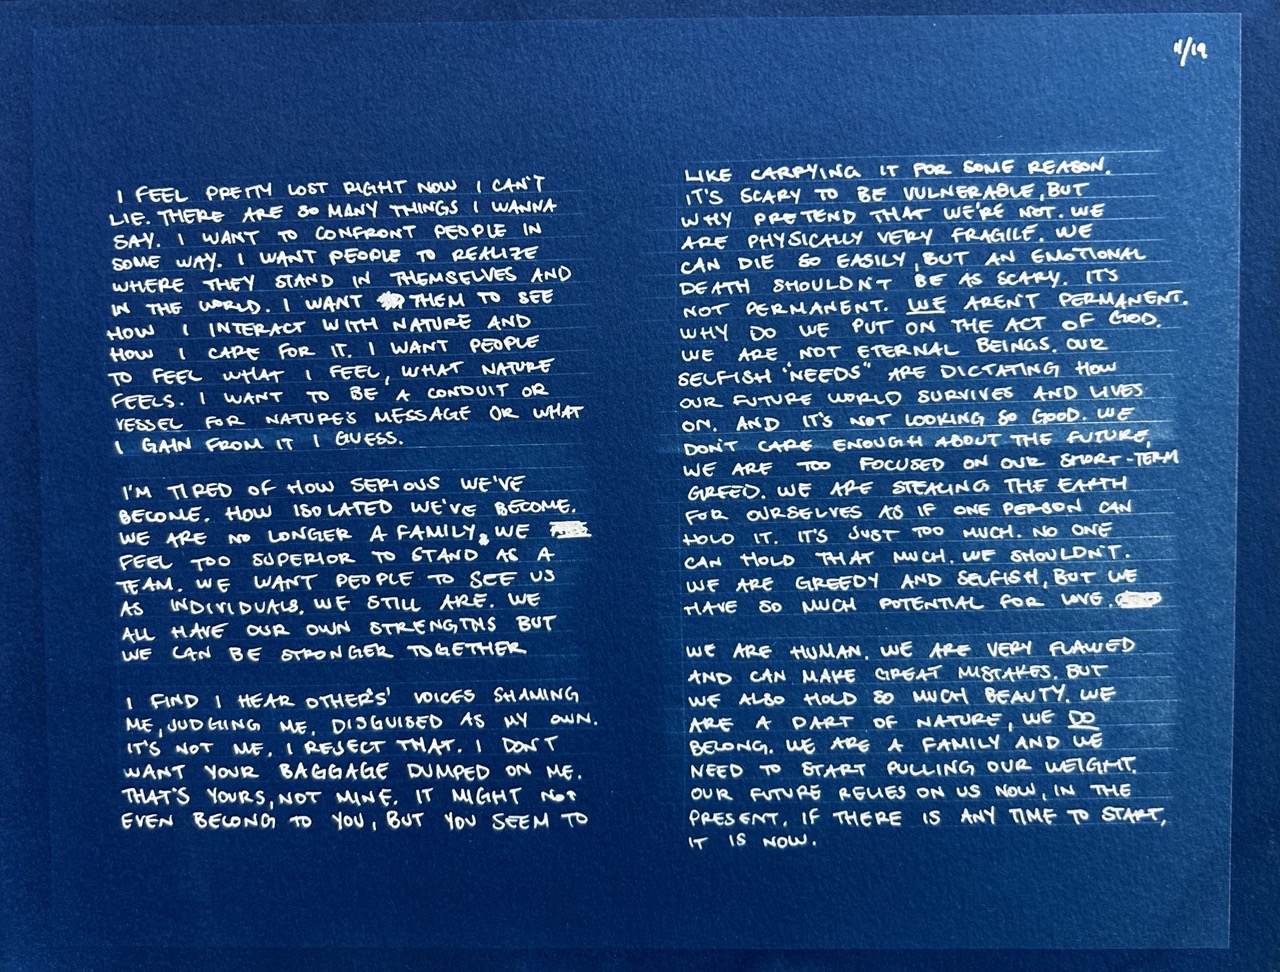 11/19
I FEEL PRETTY LOST RIGHT NOW I CAN'T
LIE. THERE ARE SO MANY THINGS I WANNA
SAY. I WANT TO CONFRONT PEOPLE IN
SOME WAY. I WANT PEOPLE TO REALIZE
WHERE THEY STAND IN THEMSELVES AND
IN THE WORLD. I WANT THEM TO SEE
HOW I INTERACT WITH NATURE AND
HOW I CARE FOR IT. I WANT PEOPLE
TO FEEL WHAT I FEEL, WHAT NATURE
FEELS. I WANT TO BE A CONDUIT OR
VESSEL FOR NATURE'S MESSAGE OR WHAT
I GAIN FROM IT I GUESS.
I'M TIRED OF HOW SERIOUS WE'VE
BECOME. HOW ISOLATED WE'VE BECOME.
WE ARE NO LONGER A FAMILY, WE
FEEL TOO SUPERIOR TO STAND AS A
TEAM. WE WANT PEOPLE TO SEE US
AS INDIVIDUALS. WE STILL ARE. WE
ALL HAVE OUR OWN STRENGTHS BUT
WE CAN BE STRONGER TOGETHER
I FIND I HEAR OTHER'S' VOICES SHAMING
ME, JUDGING ME, DISGUISED AS MY OWN.
IT'S NOT ME. I REJECT THAT. I DON'T
WANT YOUR BAGGAGE DUMPED ON ME.
THAT'S YOURS, NOT MINE. IT MIGHT NOT
EVEN BELONG TO YOU, BUT YOU SEEM TO
LIKE CARRYING IT FOR SOME REASON.
IT'S SCARY TO BE VULNERABLE, BUT
WHY PRETEND THAT WE'RE NOT. WE
ARE PHYSICALLY VERY FRAGILE. WE
CAN DIE SO EASILY, BUT AN EMOTIONAL
DEATH SHOULDN'T BE AS SCARY. IT'S
NOT PERMANENT. WE AREN'T PERMANENT.
WHY DO WE PUT ON THE ACT OF GOD.
WE ARE NOT ETERNAL BEINGS. OUR
SELFISH "NEEDS" ARE DICTATING HOW
OUR FUTURE WORLD SURVIVES AND LIVES
ON. AND IT'S NOT LOOKING SO GOOD. WE
DON'T CARE ENOUGH ABOUT THE FUTURE,
WE ARE TOO FOCUSED ON OUR SHORT-TERM
GREED. WE ARE STEALING THE EARTH
FOR OURSELVES AS IF ONE PERSON CAN
HOLD IT. IT'S JUST TOO MUCH. NO ONE
CAN HOLD THAT MUCH. WE SHOULDN'T.
WE ARE GREEDY AND SELFISH, BUT WE
HAVE SO MUCH POTENTIAL FOR LOVE.
WE ARE HUMAN. WE ARE VERY FLAWED
AND CAN MAKE GREAT MISTAKES. BUT
WE ALSO HOLD SO MUCH BEAUTY. WE
ARE A PART OF NATURE, WE DO
BELONG. WE ARE A FAMILY AND WE
NEED TO START PULLING OUR WEIGHT.
OUR FUTURE RELIES ON US NOW, IN THE
PRESENT. IF THERE IS ANY TIME TO START,
IT IS NOW.